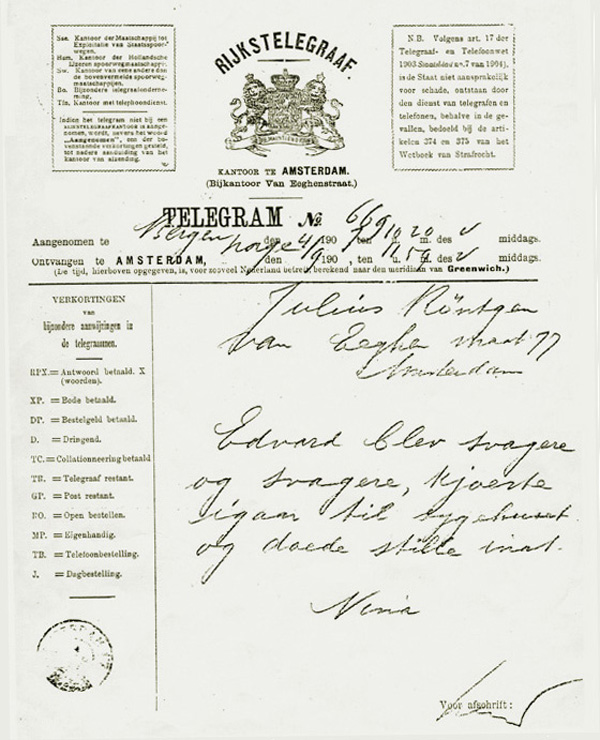 Sse. Kantoor der Maatschappij tot
Exploitatie van Staatsspoor-
wegen.
Hsm. Kantoor der Hollandsche
IJzeren spoorwegmaatschappij.
Sw. Kantoor van eene andere dan
de bovenvermelde spoorweg-
maatschappijen.
Bo. Bijzondere telegraafonderne-
ming.
Tfn. Kantoor met telephoondienst.
Indien het telegram niet bij een
RIJKSTELEGRAAFKANTOOR is aange-
nomen, wordt, nevens het woord
„Aangenomen", een der bo-
venstaande verkortingen gesteld,
tot nadere aanduiding van het
kantoor van afzending.
RIJKSTELEGRAAF
KANTOOR TE AMSTERDAM.
(Bijkantoor Van Eeghenstraat.)
N.B. Volgens art. 17 der
Telegraaf- en Telefoonwet
1903 Staatsblad nº. 7 van 1904),
is de Staat niet aansprakelijk
voor schade, ontstaan door
den dienst van telegrafen en
telefonen, behalve in de ge-
vallen, bedoeld bij de arti-
kelen 374 en 375 van het
Wetboek van Strafrecht.
TELEGRAM No. 669
Aangenomen te Bergen Norge den 4/9 1907, ten 10 u. 20 m. des v middags.
Ontvangen te AMSTERDAM, den 4/9 190 , ten 11 u. 54 m. des v middags.
(De tijd, hierboven opgegeven, is, voor zooveel Nederland betreft, berekend naar den meridiaan van Greenwich.)
VERKORTINGEN
van
bijzondere aanwijzingen in
de telegrammen.
RPX. = Antwoord betaald. X
(woorden).
XP. = Bode betaald.
DP. = Bestelgeld betaald.
D. = Dringend.
TC. = Collationneering betaald
TR. = Telegraaf restant.
GP. = Post restant.
RO. = Open bestellen.
MP. = Eigenhandig.
TB. = Telefoonbestelling.
J. = Dagbestelling.
Julius Röntgen
van Eeghen straat 77
Amsterdam
Edvard blev svagere
og svagere, kjoerte
igaar til sygehuset
og doede stille inat.
Nina
Voor afschrift: